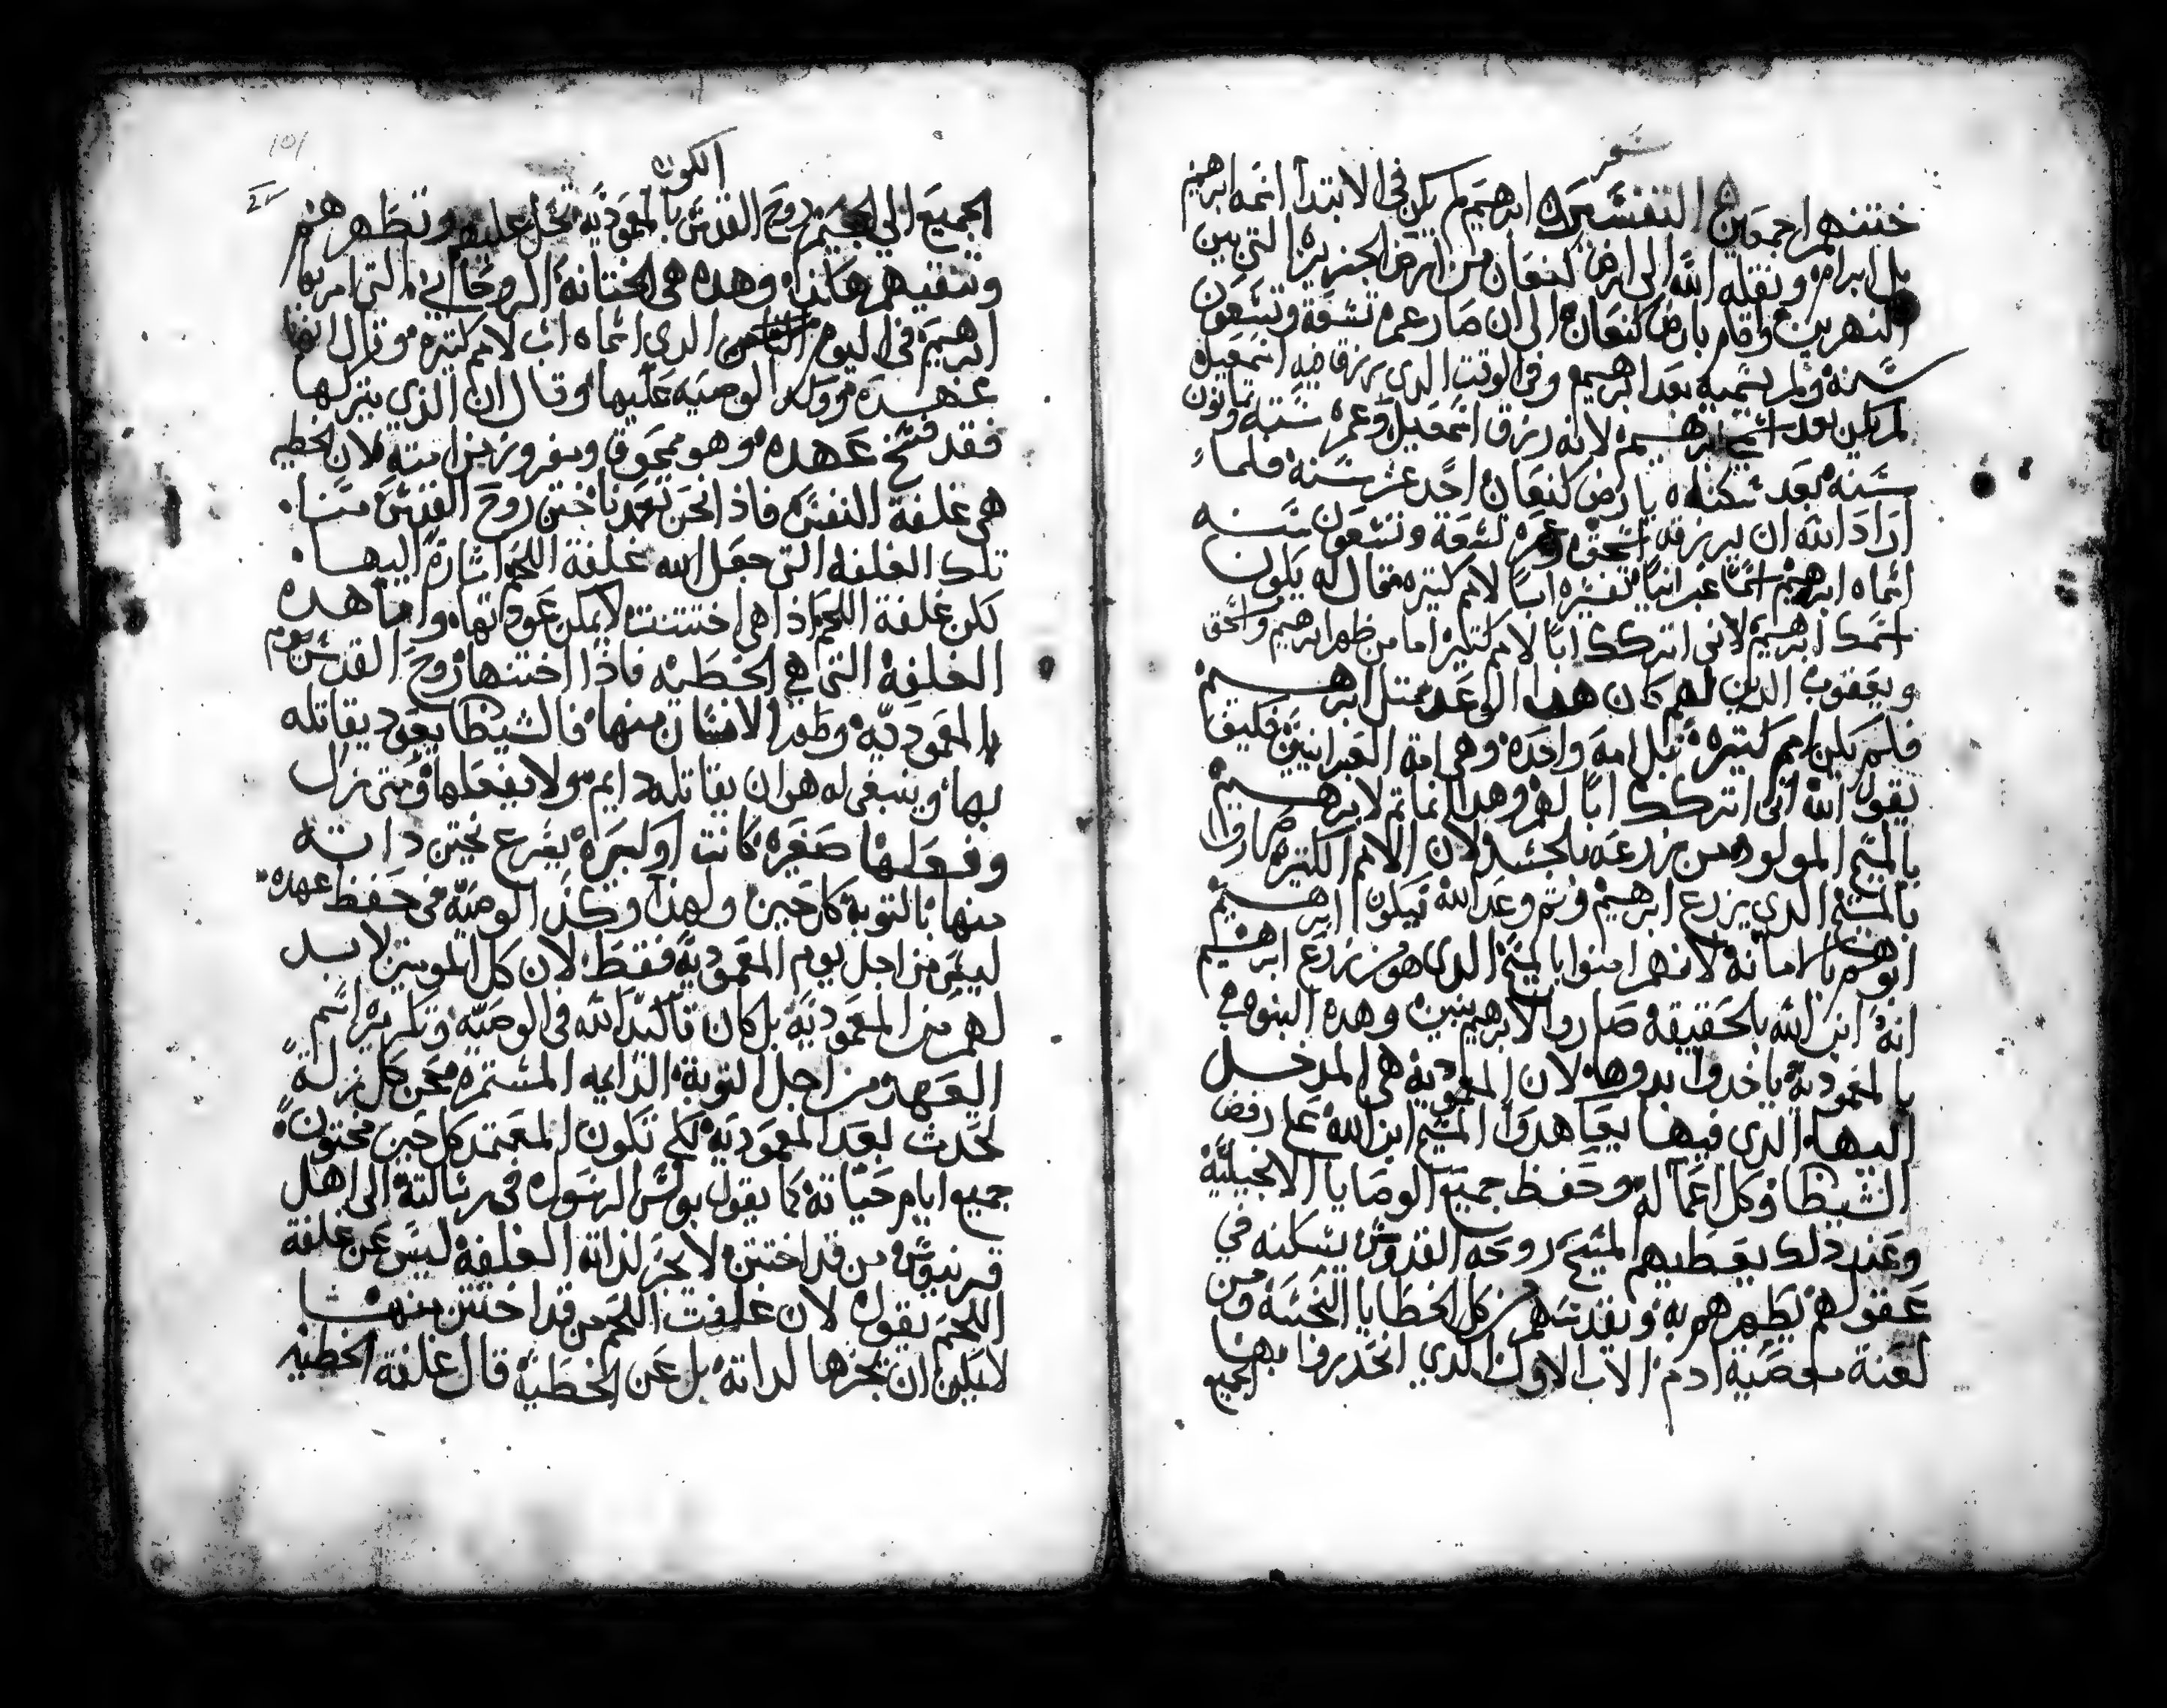 سفر
ختنهم اجمعين التفسير ابرهيم لم يكن في الابتدا اسمه ابرهيم
بل ابرام ونقله الله الى ارض كنعان من ارض الجزيرة التي بين
النهرين واقام بارض كنعان الى ان صار عمره تسعة وتسعون
سنه ولم يسميه بعد ابرهيم وفي الوقت الدي رزق فيه اسمعيل
لم يكن بعد اسمه ابرهيم لانه رزق اسمعيل وعمره سته وتمانون
سنه بعد سكناه بارض كنعان احد عشر سنه فلما
اراد الله ان يرزقه اسحق وعمره تسعة وتسعون سنه
اسماه ابرهيم اسمًا عبرانيًا تفسيره ابًا لامم كتيره فقال له يكون
اسمك ابرهيم لاني اتركك ابًا لامم كتيره اما من ظهر ابرهيم واسحق
ويعقوب الدين لهم كان هدا الوعد متل ابرهيم
فلم يكن امم كتيره بل امة واحده وهي امة العبرانيين فكيف
يقول الله اني اتركك ابًا لهم وهدا انما تم لابرهيم
بالمسيح المولود من زرعه بالجسد لان الامم الكتيره صاروا
بالمسيح الدي بزرع ابرهيم وتم وعد الله فيكون ابرهيم
ابوهم بالامانة لانهم امنوا بالمسيح الدي هو من زرع ابرهيم
انه ابن الله بالحقيقة صاروا لابرهيم بنين وهده البنوه في
بالمعمودية ياخدوا بدوها لان المعمودية هي المدخل
اليها الدي فيها يعاهدوا المسيح ابن الله على رفض
الشيطان وكل اعماله وحفظ جميع الوصايا الانجيلية
وعند دلك يعطيهم المسيح روحه القدوس يسكنه في
عقولهم يطهرهم به ويقدسهم من كل الخطايا النجسة ومن
لعنة معصية ادم الاب الاول الدي انحدروا بها
الجميع
الكون
الجميع الي الجحيم روح القدس بالمعمودية تحل عليهم وتطهرهم
وتنقيهم هاكذا وهده هي الختانة الروحاني التي امر بها
ابرهيم في اليوم الثامن الدي اسماه اب لامم كتيره وقال انها
عهده ووكد الوصيه عليها وقال ان الذي يتركها
فقد فسخ عهده وهو ممحوق ومفروز من امته لان الخطيه
هي غلفة النفس فاذا نحن تعمدنا ختن روح القدس منا
تلك الغلفه التي جعل الله غلفة اللحم اشارة اليها
لكن غلفة اللحم اذا هي اختتنت لا يمكن عودتها واما هده
الغلفة التي هي الخطية فاذا اختنها روح القدس يوم
بالمعمودية وطهر الانسان منها فالشيطان يعود يقاتله
بها وينبغي له هو ان يقاتله دايم ولا يفعلها ومتى زل
وفعلها صغيره كانت او كبيره يسرع يختن داته
منها بالتوبة كل حين ولهذا وكد الوصية في حفظ عهده
ليس من اجل يوم المعمودية فقط لان كل المومنين لا بد
لهم من المعمودية بل كان تاكيد الله في الوصية وتكريره اسم
العهد من اجل التوبة الدايمه المستمره محن كل زلة
تحدث بعد المعمودية لكي تكون المعتمد كل حين مختون
جميع ايام حياته كما يقول بولس الرسول في رسالته الى اهل
قرنتيوس من قد اختتن لا يجز لذاته الغلفة ليس عن غلفة
اللحم يقول لان غلفت اللحم من قد اختتن منها
لا يمكن ان يجزها لداته بل عن الخطية قال غلفة الخطيه